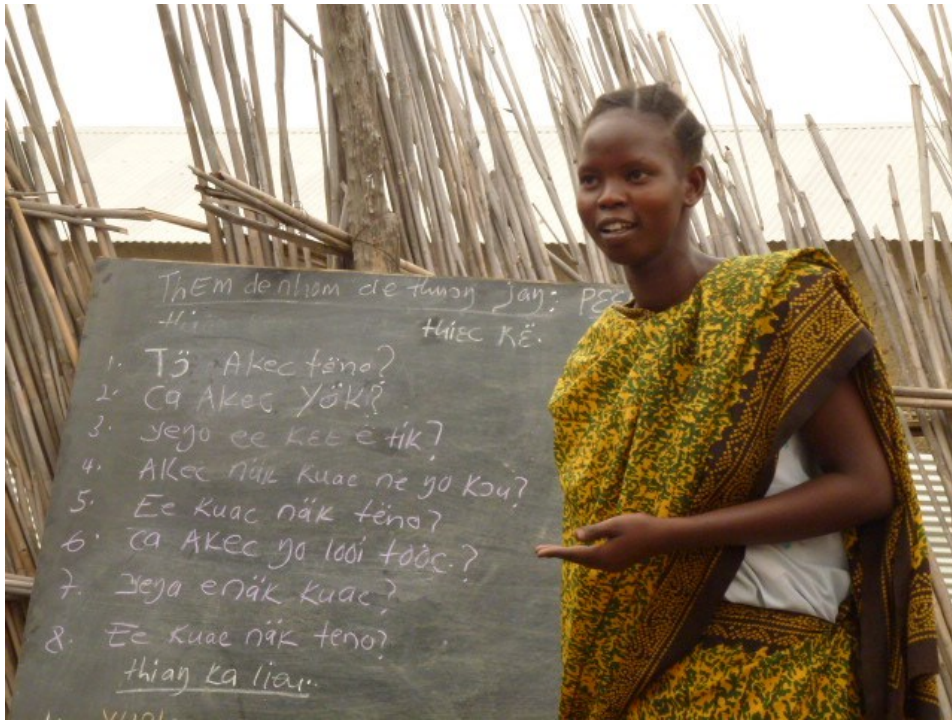 ThEm de nhom de thuoŋ jaŋ: PEE
thi
thiëc Kë.
1. Tɔ̈ Akec tëno?
2. Ca Akec Yök?
3. yeŋo ee KEE ë tik?
4. Akec näk kuac në ŋo kɔu?
5. Ee kuac näk tëno?
6. Ca AKec ŋo looi tooc?
7. yeŋa enäk kuac?
8. Ee kuac näk teno?
thiaŋ ka